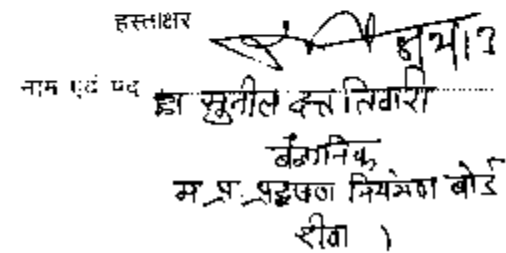 हस्ताक्षर
नाम एवं पद डा सुनील दत्त तिवारी
वैज्ञानिक
म प्र प्रदूषण नियंत्रण बोर्ड
रीवा )